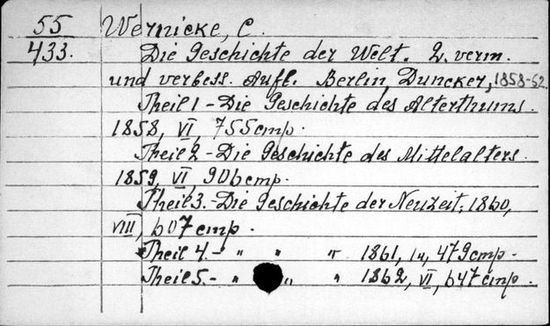 55 Wernicke, C.
433. Die Geschichte der Welt. 2. verm.
und verbess. Aufl. Berlin, Duncker, 1858-62
Theil 1 - Die Geschichte des Alterthums.
1858, VI, 755 стр.
Theil 2 - Die Geschichte des Mittelalters.
1859, VI, 906 стр.
Theil 3. - Die Geschichte der Neuzeit, 1860,
VIII, 607 стр.
Theil 4. - " " " 1861, IV, 479 стр.
Theil 5. - " " " 1862, VI, 647 стр.